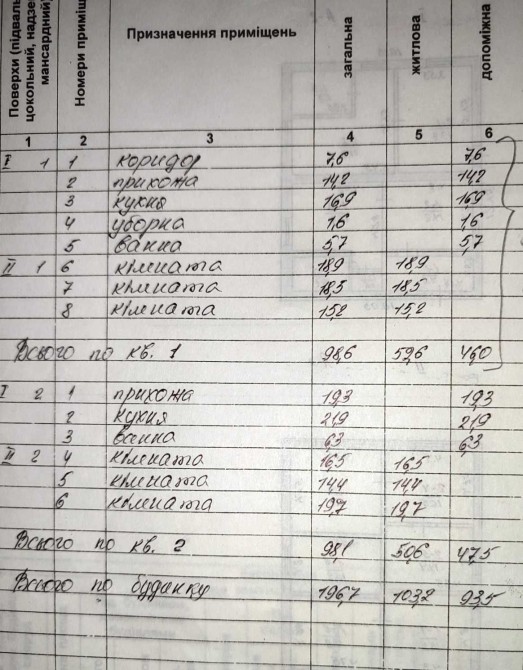 Поверхи (підваль
цокольний, надзе
мансардний)
Номери приміщ
Призначення приміщень
загальна
житлова
допоміжна
1 2 3 4 5 6
I 1 1 коридор 7,6 7,6
2 прихожа 14,2 14,2
3 кухня 16,9 16,9
4 уборна 1,6 1,6
5 ванна 5,7 5,7
II 1 6 кімната 18,9 18,9
7 кімната 18,5 18,5
8 кімната 15,2 15,2
Всього по кв. 1 98,6 52,6 46,0
I 2 1 прихожа 19,3 19,3
2 кухня 21,9 21,9
3 ванна 6,3 6,3
II 2 4 кімната 16,5 16,5
5 кімната 14,4 14,4
6 кімната 19,7 19,7
Всього по кв. 2 98,1 50,6 47,5
Всього по буданку 196,7 103,2 93,5